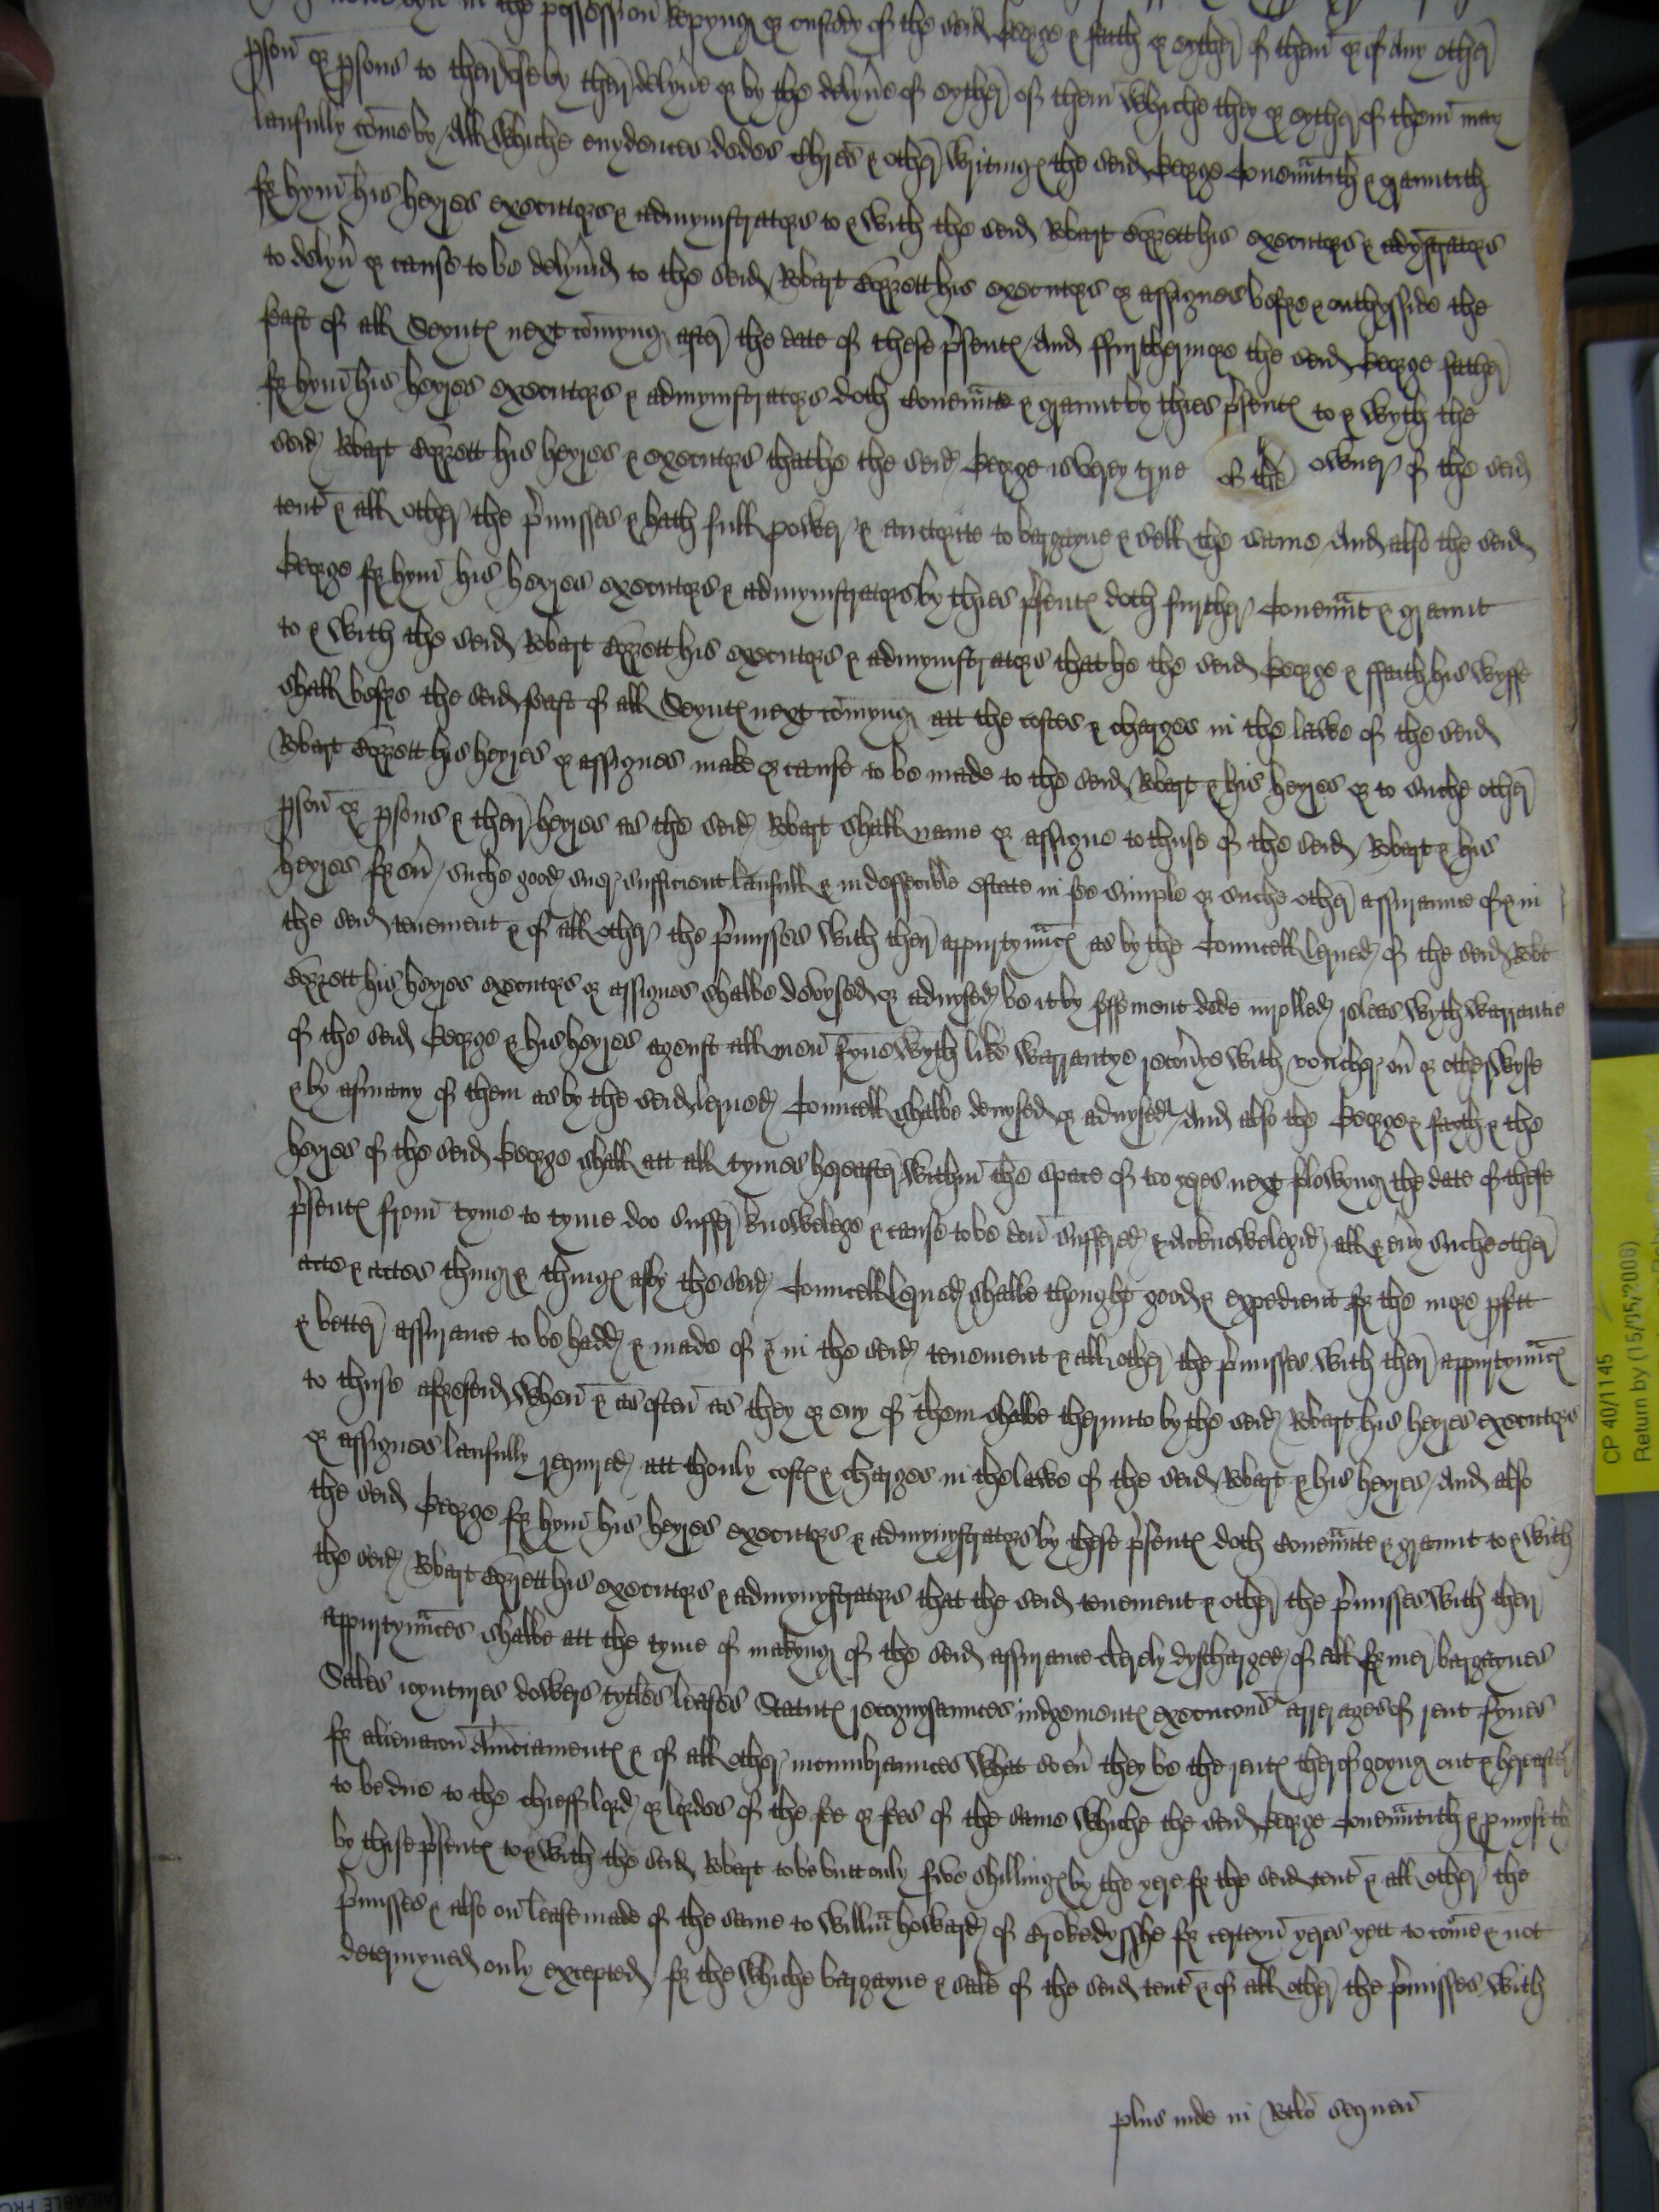 in the possession kepyng or custody of the seid George & faith or eyther of them or of any other
pson or psons to ther use by ther delyue or by the delyue of eyther of them whiche they or eyther of them may
laufully come by All whiche euydences dedes chres & other writing the seid George Couenntith & grauntith
for hym his heyres executors & admynystrators to & with the seid Robart his executors & admystrators
to delyu or cause to be delyuid to the seid Robart his executors or assignes before & onthysside the
feast of all Seynt next comyng after the date of these psent And ffurthermore the seid George father
for hym his heyres executors & admynystrators doth Couennte & graunt by thies psent to & wyth the
seid Robart his heyres & executors that he the seid George is verey true of the owner of the seid
tent & all other the pmisses & hath full power & auctorite to bargayne & sell the same And also the seid
George for hym his heyres executors & admynystrators by thies psent doth further Couennt & graunt
to & with the seid Robart his executors & admynystrators that he the seid George & ffaith his wyffe
shall before the seid feast of all Seynt next comyng att the costes & charges in the lawe of the seid
Robart his heyres or assignes make or cause to be made to the seid Robart & his heyres or to suche other
pson or psons & ther heyres as the seid Robart shall name or assigne to thuse of the seid Robart & his
heyres for eu suche good suer sufficient laufull & indeffecible estate in fee simple or suche other assuraunce of & in
the seid tenement & of all other the pmisses with ther appurtynnc as by the Councell lerned of the seid Robt
his heyres executors or assignes shalbe devysed or aduysed be it by feffement dede inrolled releas wyth warrantie
of the seid George & his heyres agenst all men fyne wyth like warrantye recouye with voucher ou or otherwyse
& by asmany of them as by the seid lerned Councell shalbe deuysed or aduysed And also the George & fayth & the
heyres of the seid George shall att all tymes hereafter within the space of too yeres next folowyng the date of these
psent from tyme to tyme doo suffer knowelege & cause to be don suffered & acknowelegid all & eury suche other
acte & actes thing & thing as by the seid Councell lerned shalbe thought good & expedient for the more pfett
& better assurance to be hadd & made of & in the seid tenement & all other the pmisses with ther appurtynnc
to thuse aforeseid when & as often as they or eny of them shalbe therunto by the seid Robart his heyres executors
or assignes laufully required att thonly cost & charges in the lawe of the seid Robart & his heyres And also
the seid George for hym his heyres executors & admynystrators by these psent doth Couennte & graunt to & with
the seid Robart his executors & admynystrators that the seid tenement & other the pmisses with ther
appurtynnces shalbe att the tyme of makyng of the seid assurance clerely dyscharged of all former bargaynes
Sales ioyntures dowers tytles leases Statut recognysaunces iudgement execucons arrerages of rent fynes
for alienacon Amciament & of all other incumbraunces what soeu they be the rent therof goyng out & hereafter
to be due to the chieff lord or lordes of the fee or fees of the same whiche the seid George Couenntith & pmyseth
by thise psent to & with the seid Robart to be butt only five shilling by the yere for the seid tent & all other the
pmisses & also on lease made of the same to Willm howard of Brokedysshe for certeyn yeres yett to come & not
determyned only excepted for the whiche bargayne & sale of the seid tent & of all other the pmisses with
plus inde in Rtlo sequen
CP 40/1145
Return by (15/05/2008)